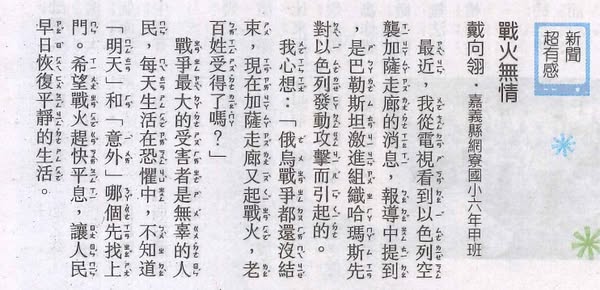 新聞
超有感
戰火無情
戴向翎．嘉義縣網寮國小六年甲班
最近，我從電視看到以色列空
襲加薩走廊的消息，報導中提到
，是巴勒斯坦激進組織哈瑪斯先
對以色列發動攻擊而引起的。
我心想：「俄烏戰爭都還沒結
束，現在加薩走廊又起戰火，老
百姓受得了嗎？」
戰爭最大的受害者是無辜的人
民，每天生活在恐懼中，不知道
「明天」和「意外」哪個先找上
門。希望戰火趕快平息，讓人民
早日恢復平靜的生活。